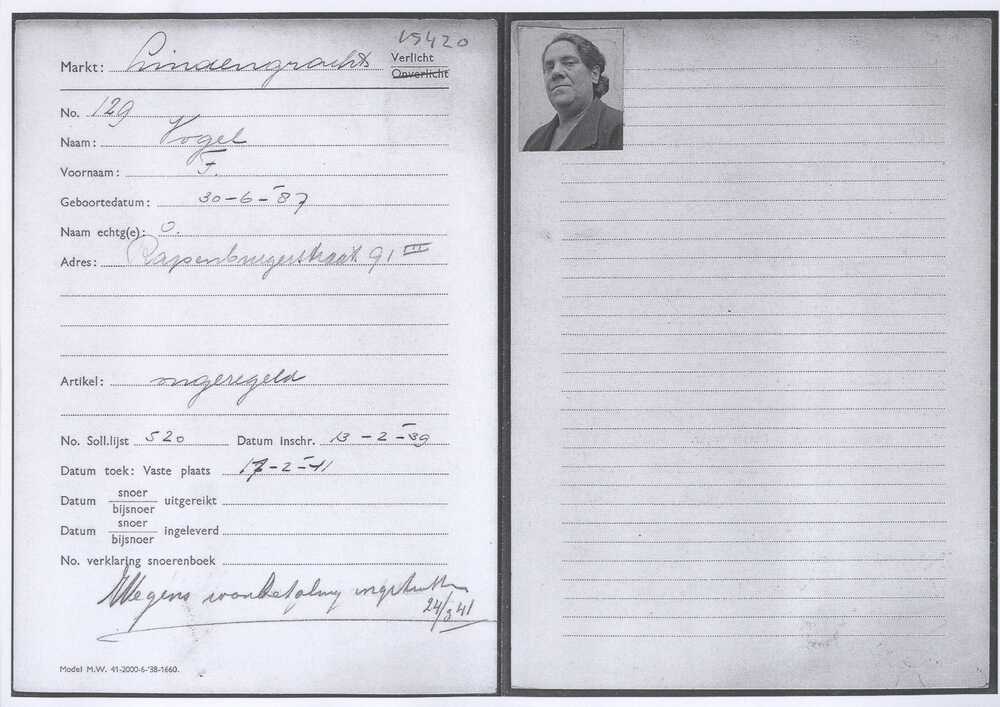 15420
Markt: Lindengracht Verlicht
Onverlicht
No. 129
Naam: Vogel
Voornaam: F.
Geboortedatum: 30-6-'87
Naam echtg(e): O.
Adres: Rapenburgerstraat 91 III
Artikel: ongeregeld
No. Soll.lijst 520 Datum inschr. 13-2-'39
Datum toek: Vaste plaats 17-2-'41
Datum snoer/bijsnoer uitgereikt
Datum snoer/bijsnoer ingeleverd
No. verklaring snoerenboek
Wegens wanbetaling ingetrokken
24/3 41
Model M.W. 41-2000-6-'38-1660.